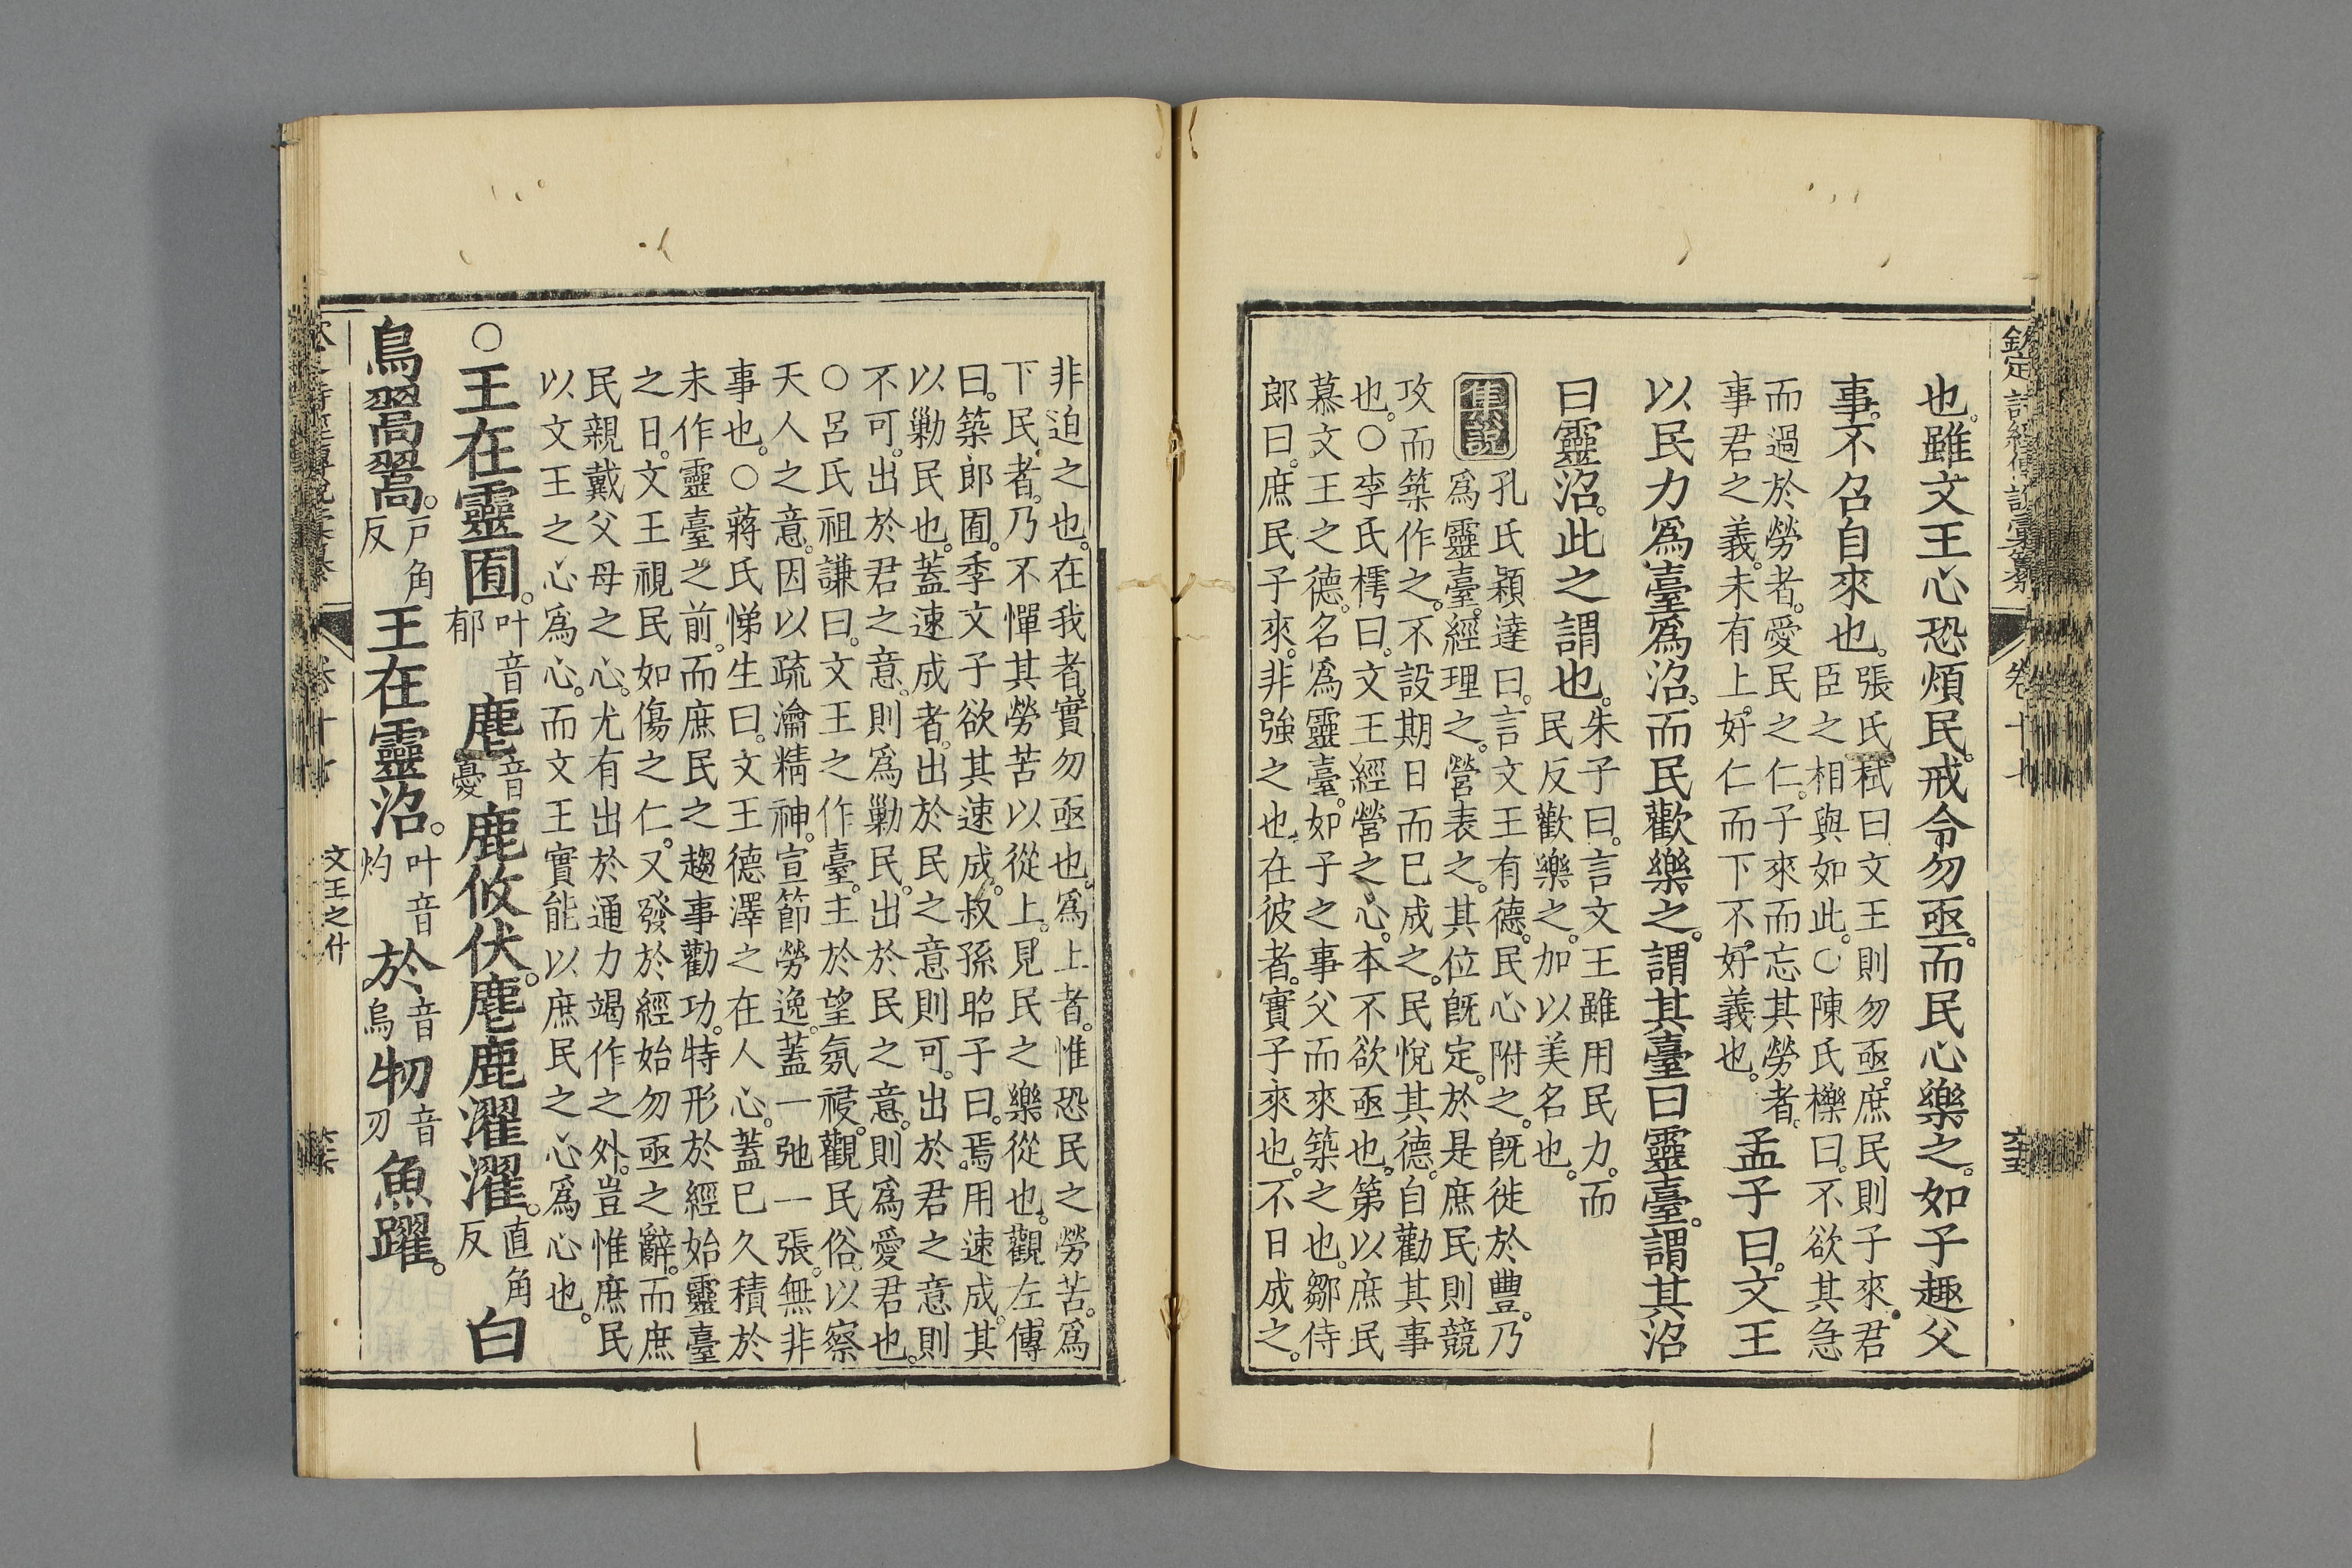 欽定詩經傳說彙纂 卷十七
也。雖文王心恐煩民。戒令勿亟。而民心樂之。如子趣父
事。不召自來也。
張氏栻曰文王則勿亟。庶民則子來。君
臣之相與如此。○陳氏櫟曰。不欲其急
而過於勞者。愛民之仁。子來而忘其勞者。
事君之義。未有上。好仁而下不。好義也。
孟子曰。文王
以民力爲臺爲沼。而民歡樂之。謂其臺曰靈臺。謂其沼
曰靈沼。此之謂也。
朱子曰。言文王雖用民力。而
民反歡樂之。加以美名也。
集說
孔氏穎達曰。言文王有德。民心附之。旣徙於豐。乃
爲靈臺。經理之。營表之。其位旣定。於是庶民則競
攻而築作之。不設期日而已成之。民悅其德。自勸其事
也。○李氏樗曰。文王經營之心。本不欲亟也。第以庶民
慕文王之德。名爲靈臺。如子之事父而來築之也。鄒侍
郎曰。庶民子來。非強之也。在彼者。實子來也。不日成之。
非迫之也。在我者。實勿亟也。爲上者。惟恐民之勞苦。爲
下民者。乃不憚其勞苦以從上。見民之樂從也。觀左傳
曰。築郎囿。季文子欲其速成。叔孫昭子曰。焉用速成。其
以勦民也。蓋速成者。出於民之意則可。出於君之意則
不可。出於君之意。則爲勦民。出於民之意。則爲愛君也。
○呂氏祖謙曰。文王之作臺。主於望氛祲。觀民俗。以察
天人之意。因以疏瀹精神。宣節勞逸。蓋一弛一張。無非
事也。○蔣氏悌生曰。文王德澤之在人心。蓋已久積於
未作靈臺之前。而庶民之趨事勸功。特形於經始靈臺
之日。文王視民如傷之仁。又發於經始勿亟之辭。而庶
民親戴父母之心。尤有出於通力竭作之外。豈惟庶民
以文王之心爲心。而文王實能以庶民之心爲心也。
○王在靈囿。叶音郁麀音憂鹿攸伏。麀鹿濯濯。直角反白
鳥翯翯。戸角反王在靈沼。叶音灼於音烏牣音刃魚躍。
文王之什